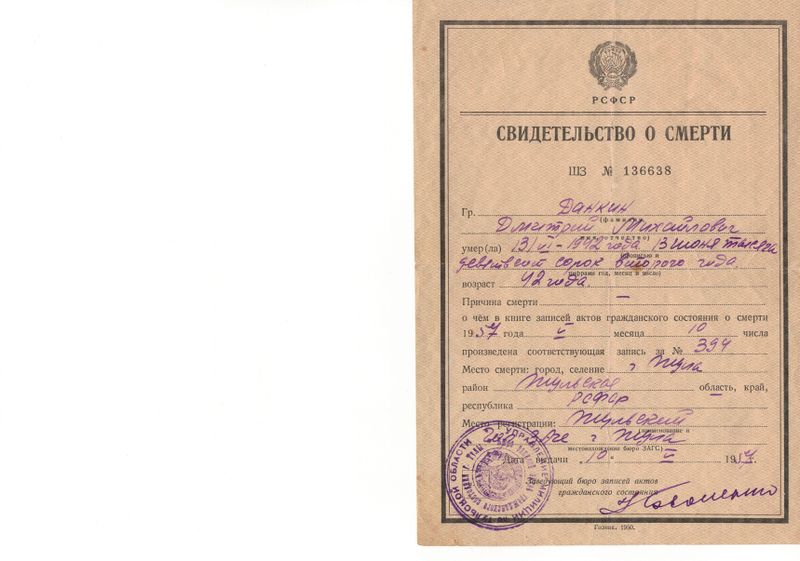 РСФСР
СВИДЕТЕЛЬСТВО О СМЕРТИ
ШЗ № 136638
Гр. Данкин
(фамилия
Дмитрий Михайлович
имя и отчество)
умер(ла) 13/VI-1942 года 13 июня тысяча
(прописью и
девятьсот сорок второго года.
цифрами год, месяц и число)
возраст 42 года.
Причина смерти —
о чём в книге записей актов гражданского состояния о смерти
1957 года V месяца 10 числа
произведена соответствующая запись за № 394
Место смерти: город, селение г Тула
район Тульская область, край,
республика РСФСР
Место регистрации: Тульский
(наименование и
г Тула
местонахождение бюро ЗАГС)
Дата выдачи „10“ V 1957г.
Заведующий бюро записей актов
гражданского состояния
УПРАВЛЕНИЕ МИЛИЦИИ ПО ТУЛЬСКОЙ ОБЛАСТИ
Гознак. 1950.